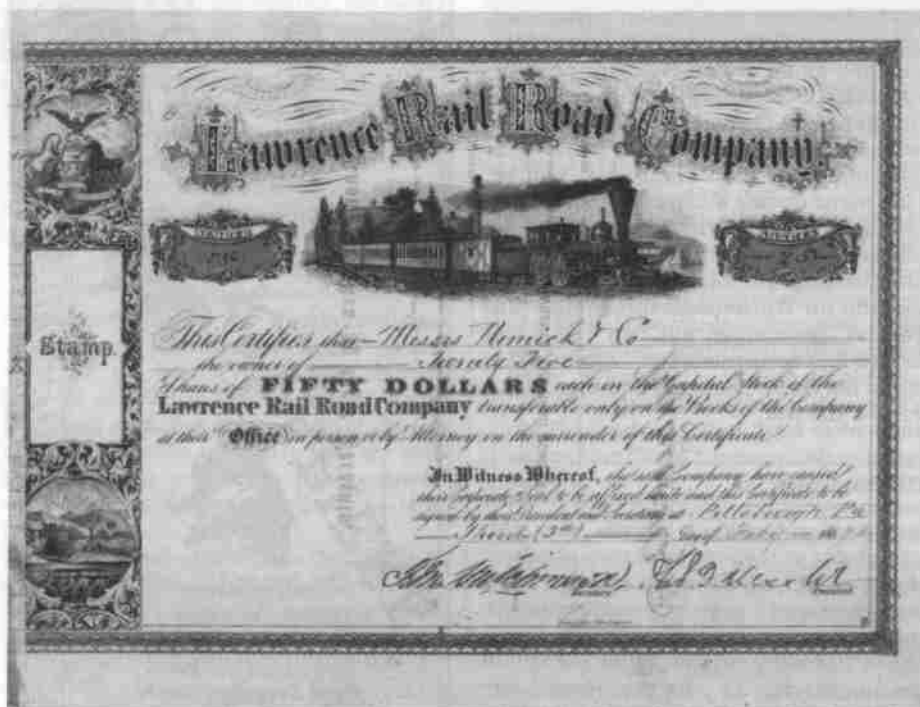 Lawrence Rail Road Company.
NUMBER
SHARES
Stamp.
This Certifies that Messrs Nimick & Co
the owner of Twenty Five
Shares of FIFTY DOLLARS each in the Capital Stock of the
Lawrence Rail Road Company transferable only on the Books of the Company
at their Office in person or by Attorney on the surrender of this Certificate
In Witness Whereof, the said Company have caused
their Corporate Seal to be affixed hereto and this Certificate to be
signed by their President and Secretary at Pittsburgh Pa
Third (3rd) day of July 18